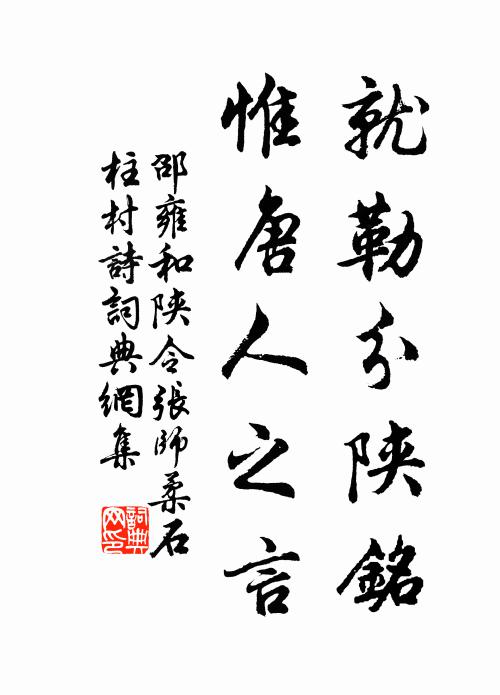 就勒分陝銘
惟唐人之言
邵雍和陝令張師柔石
柱村詩詞典網集
詞典
网印